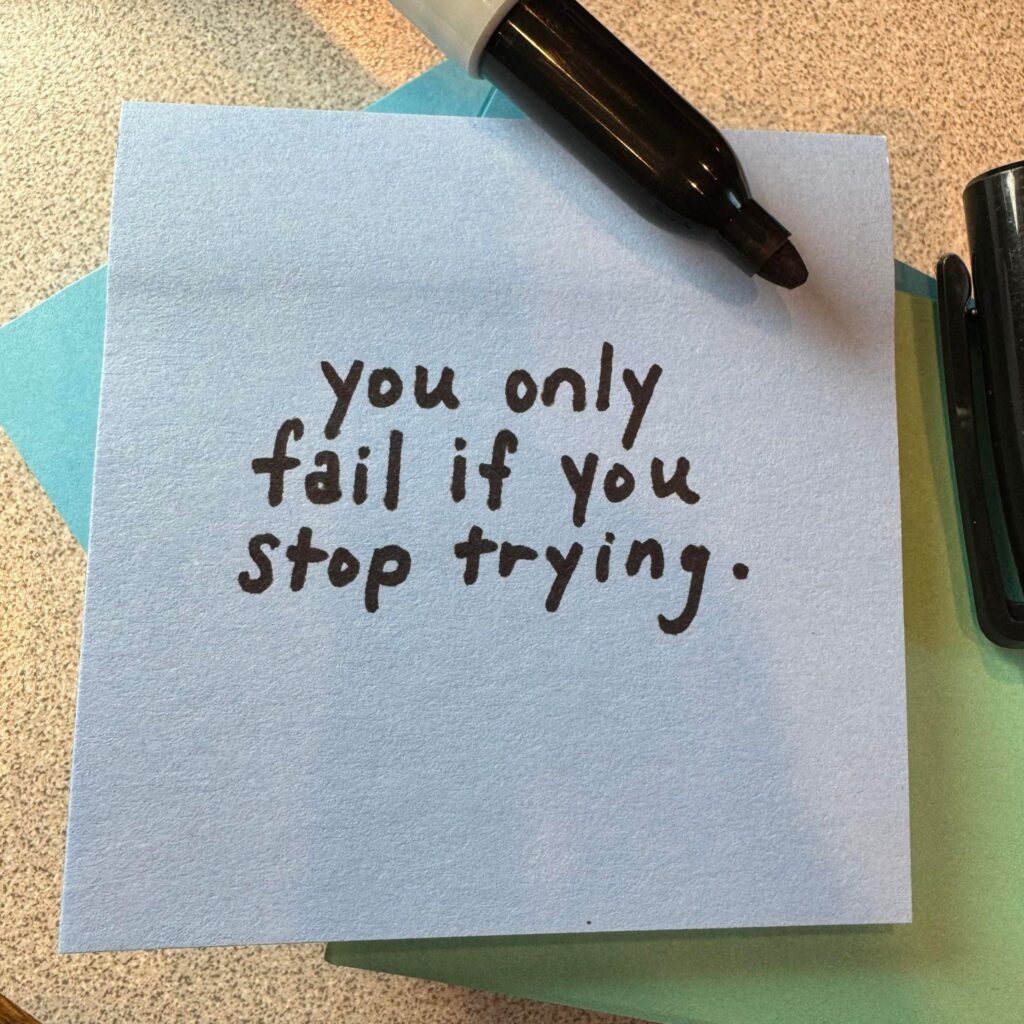 you only
fail if you
stop trying.